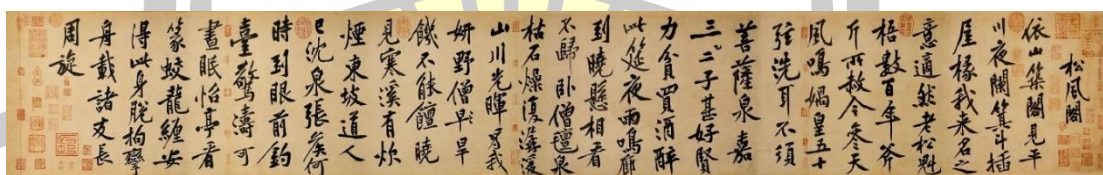 松風閣
依山築閣見平
川夜闌箕斗插
屋椽我來名之
意適然老松魁
梧數百年斧
斤所赦今參天
風鳴媧皇五十
弦洗耳不須
菩薩泉嘉
三二子甚好賢
力貧買酒醉
此筵夜雨鳴廊
到曉懸相看
不歸臥僧氈泉
枯石燥復潺湲
山川光暉為我
妍野僧早旱
飢不能饘曉
見寒溪有炊
煙東坡道人
已沈泉張侯何
時到眼前釣
臺驚濤可
晝眠怡亭看
篆蛟龍纏安
得此身脫拘攣
舟載諸友長
周旋